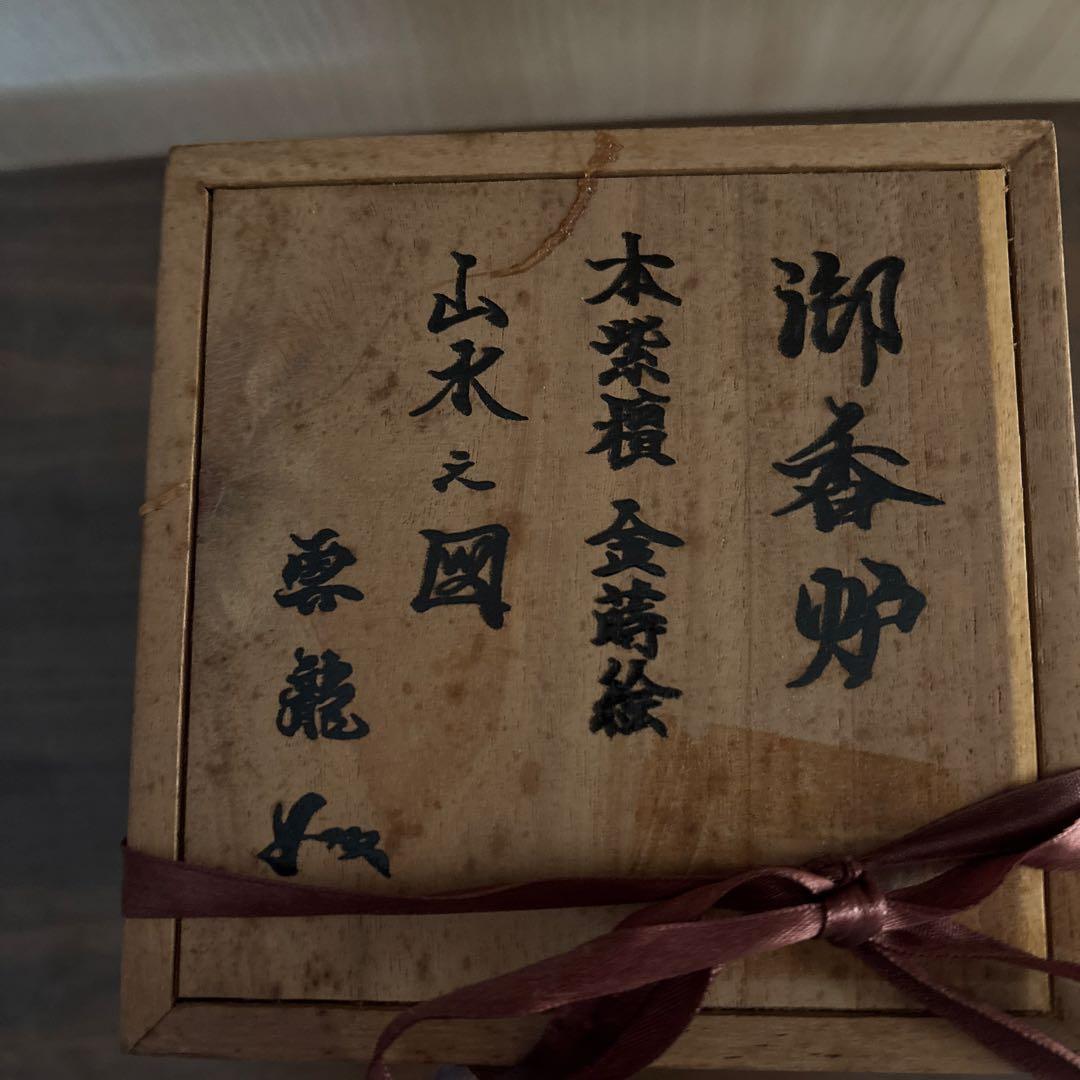 御香炉
本紫檀 金蒔絵
山水之図
雲龍